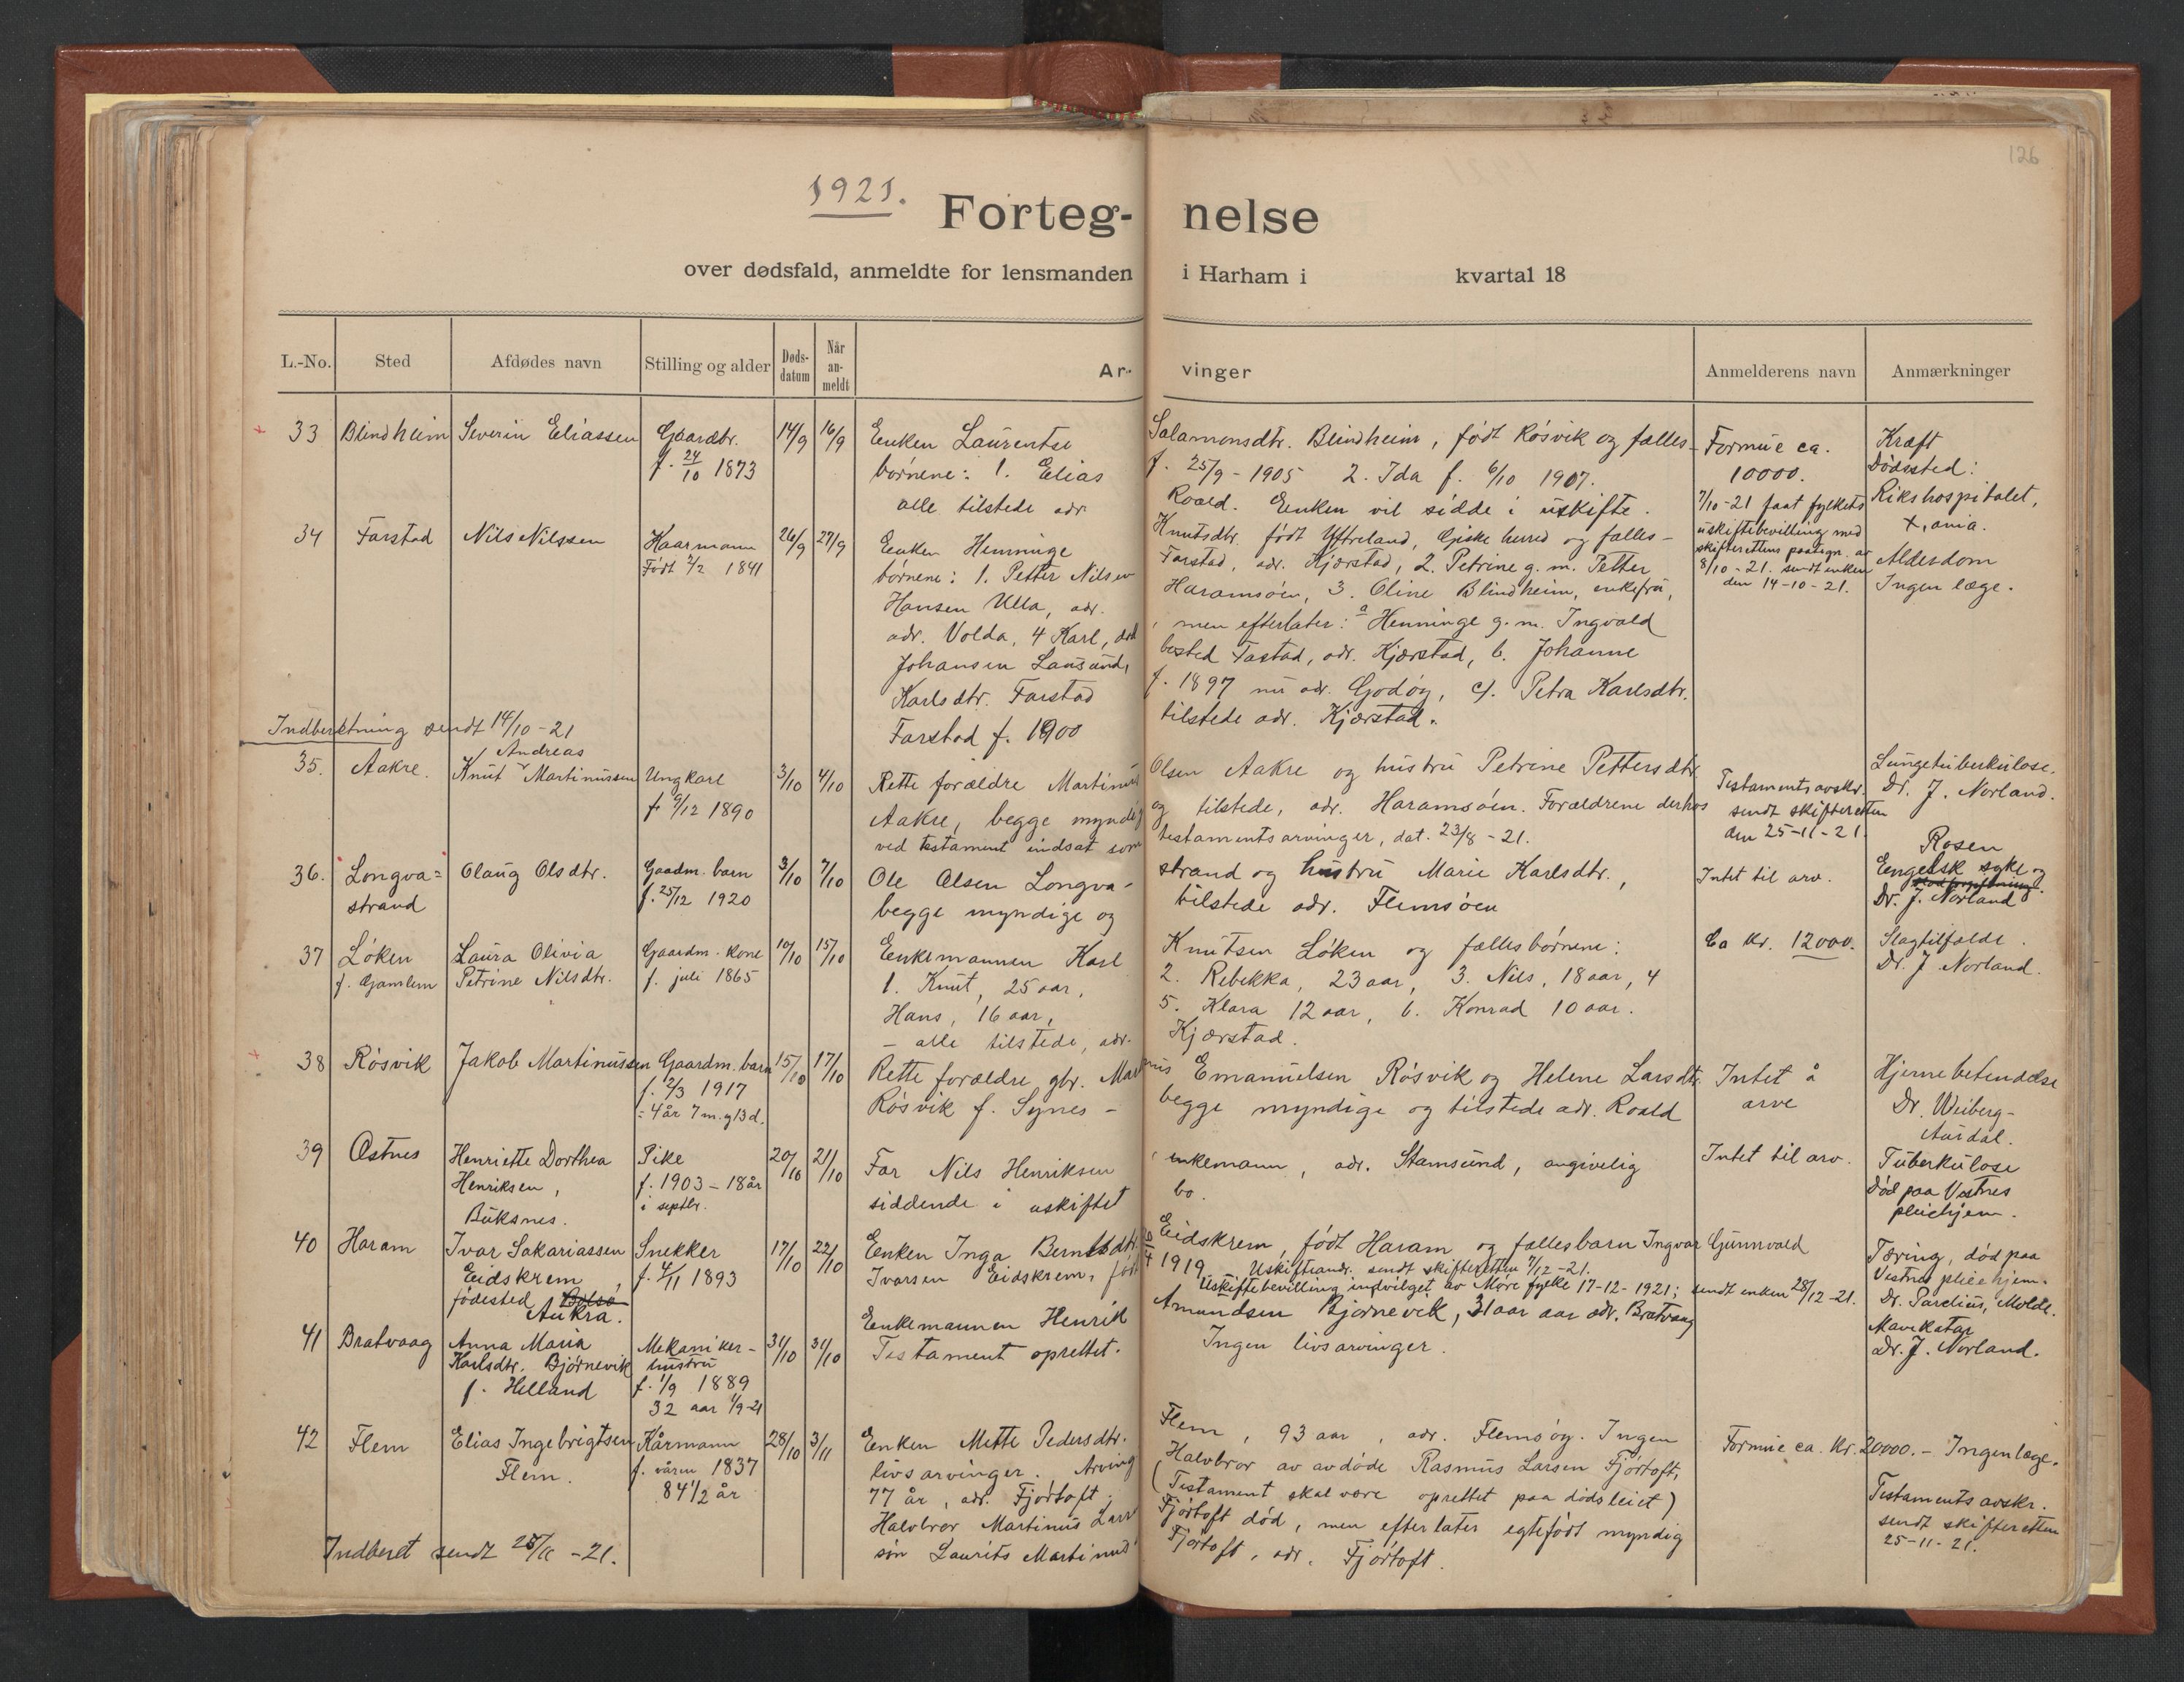 126
1921.
Forteg- nelse
over dødsfald, anmeldte for lensmanden i Harham i kvartal 18
L.-No. Sted Afdødes navn Stilling og alder Døds-datum Når an-meldt Ar- vinger Anmelderens navn Anmærkninger
33 Blindheim Severin Eliassen Gaardbr. 14/9 16/9 Enken Laurentse Salamonsdtr. Blindheim, født Røsvik og fælles- Formue ca. Kræft
f. 24/10 1873 børnene: 1. Elias f. 25/9 - 1905 2. Ida f. 6/10 1907. 10000. Dødssted:
alle tilstede adr. Roald. Enken vil sidde i uskifte. 7/10-21 faat fylkets Rikshospitalet,
34 Farstad Nils Nilssen Kaarmann 26/9 27/9 Enken Henninge Knutsdtr. født Ytreland, Giske herred og fælles- uskiftebevilling med X,ania.
Født 2/2 1841 børnene: 1. Petter Nilsen Farstad, adr. Kjørstad, 2. Petrine g. m. Petter skifterettens paategn. av Alderdom
8/10 - 21. sendt enken
Hansen Ulla, adr. Haramsøen, 3. Oline Blindheim, enkefru, den 14-10-21. Ingen læge.
adr. Volda, 4 Karl, død, men efterlater: a Henninge g. m. Ingvald
Johansen Lausund, bosted Farstad, adr. Kjørstad, b. Johanne
Karlsdtr. Farstad f. 1897 nu adr. Godøy, c/. Petra Karlsdtr.
Farstad f. 1900 tilstede adr. Kjørstad.
Indberetning sendt 14/10-21
Andreas
35. Aakre. Knut Martinussen Ungkarl 3/10 4/10 Rette forældre Martinus Olsen Aakre og hustru Petrine Pettersdtr. Testamentsavskr. Lungetuberkulose.
f. 9/12 1890 Aakre, begge myndig og tilstede, adr. Haramsøen. Forældrene derhos sendt skifteretten Dr. J. Norland.
ved testament indsat som testamentsarvinger, dat. 23/8 - 21. den 25-11-21.
36. Longva= Olaug Olsdtr. Gaadm. barn 3/10 7/10 Ole Olsen Longva- strand og hustru Marie Karlsdtr., Intet til arv. Rosen
strand f. 25/12 1920 begge myndige og tilstede adr. Flemsøen Engelsk syke og
Dr. J. Norland
37 Løken Laura Olivia Gaardm. kone 10/10 15/10 Enkemannen Karl Knutsen Løken og fællesbørnene: Ca Kr. 12000. Slagtilfælde.
f. Gamlem Petrine Nilsdtr. f. juli 1865 1. Knut, 25 aar, 2. Rebekka, 23 aar, 3. Nils, 18 aar, 4 Dr. J Norland.
Hans, 16 aar, 5. Klara 12 aar, 6. Konrad 10 aar.
- alle tilstede, adr. Kjørstad.
38 Røsvik Jakob Martinussen Gaardm. barn 15/10 17/10 Rette forældre gbr. Martinus Emanuelsen Røsvik og Helene Larsdtr. Intet å Hjernebetendelse
f. 2/3 1917 Røsvik f. Synes - begge myndige og tilstede adr. Roald arve Dr. Weiberg-
= 4 år 7 m. og 13 d. Aurdal.
39 Østnes Henriette Dorthea Pike 20/10 21/10 Far Nils Henriksen, enkemann, adr. Stamsund, angivelig Intet til arv. Tuberkulose
Henriksen, f. 1903 - 18 år siddende i uskiftet bo. Død paa Vestnes
Buksnes. i septbr. pleiehjem.
40 Haram Ivar Sakariassen Snekker 17/10 22/10 Enken Inga Berntsdtr. Eidskrem, født Haram og fællesbarn Ingvar Gunnvald Tæring, død paa
Eidskrem, f. 4/11 1893 Ivarsen Eidskrem, født 26/4 1919. Uskifteandr. sendt skifteretten 7/12-21. Vestnes pleiehjem.
fødested Bolsø Uskiftebevilling indvilget av Møre fylke 17-12-1921; sendt enken 28/12-21. Dr. Parelius, Molde.
Aukra.
41 Bratvaag Anna Maria Mekaniker- 31/10 31/10 Enkemannen Henrik Amundsen Bjørnevik, 31 aar aar adr. Bratvaag Mavekatar
Karlsdtr. Bjørnevik hustru Testament oprettet. Ingen livsarvinger. Dr. J. Norland.
f. Helland f. 1/9 1889
32 aar 1/9-21
42 Flem Elias Ingebrigtsen Kårmann 28/10 3/11 Enken Mette Pedersdtr. Flem, 93 aar, adr. Flemsøy. Ingen Formue ca. Kr. 20000. - Ingen læge.
Flem. f. våren 1837 livsarvinger. Arving Halvbror av avdøde Rasmus Larsen Fjørtoft,
84 1/2 år 77 år, adr. Fjørtoft. (Testament skal være oprettet paa dødsleiet) Testamentsavskr.
Halvbror Martinus Larsen Fjørtoft død, men efterlater egtefødt myndig sendt skifteretten
Indberet sendt 25/11 - 21. søn Laurits Martinus Fjørtoft, adr. Fjørtoft. 25-11-21.